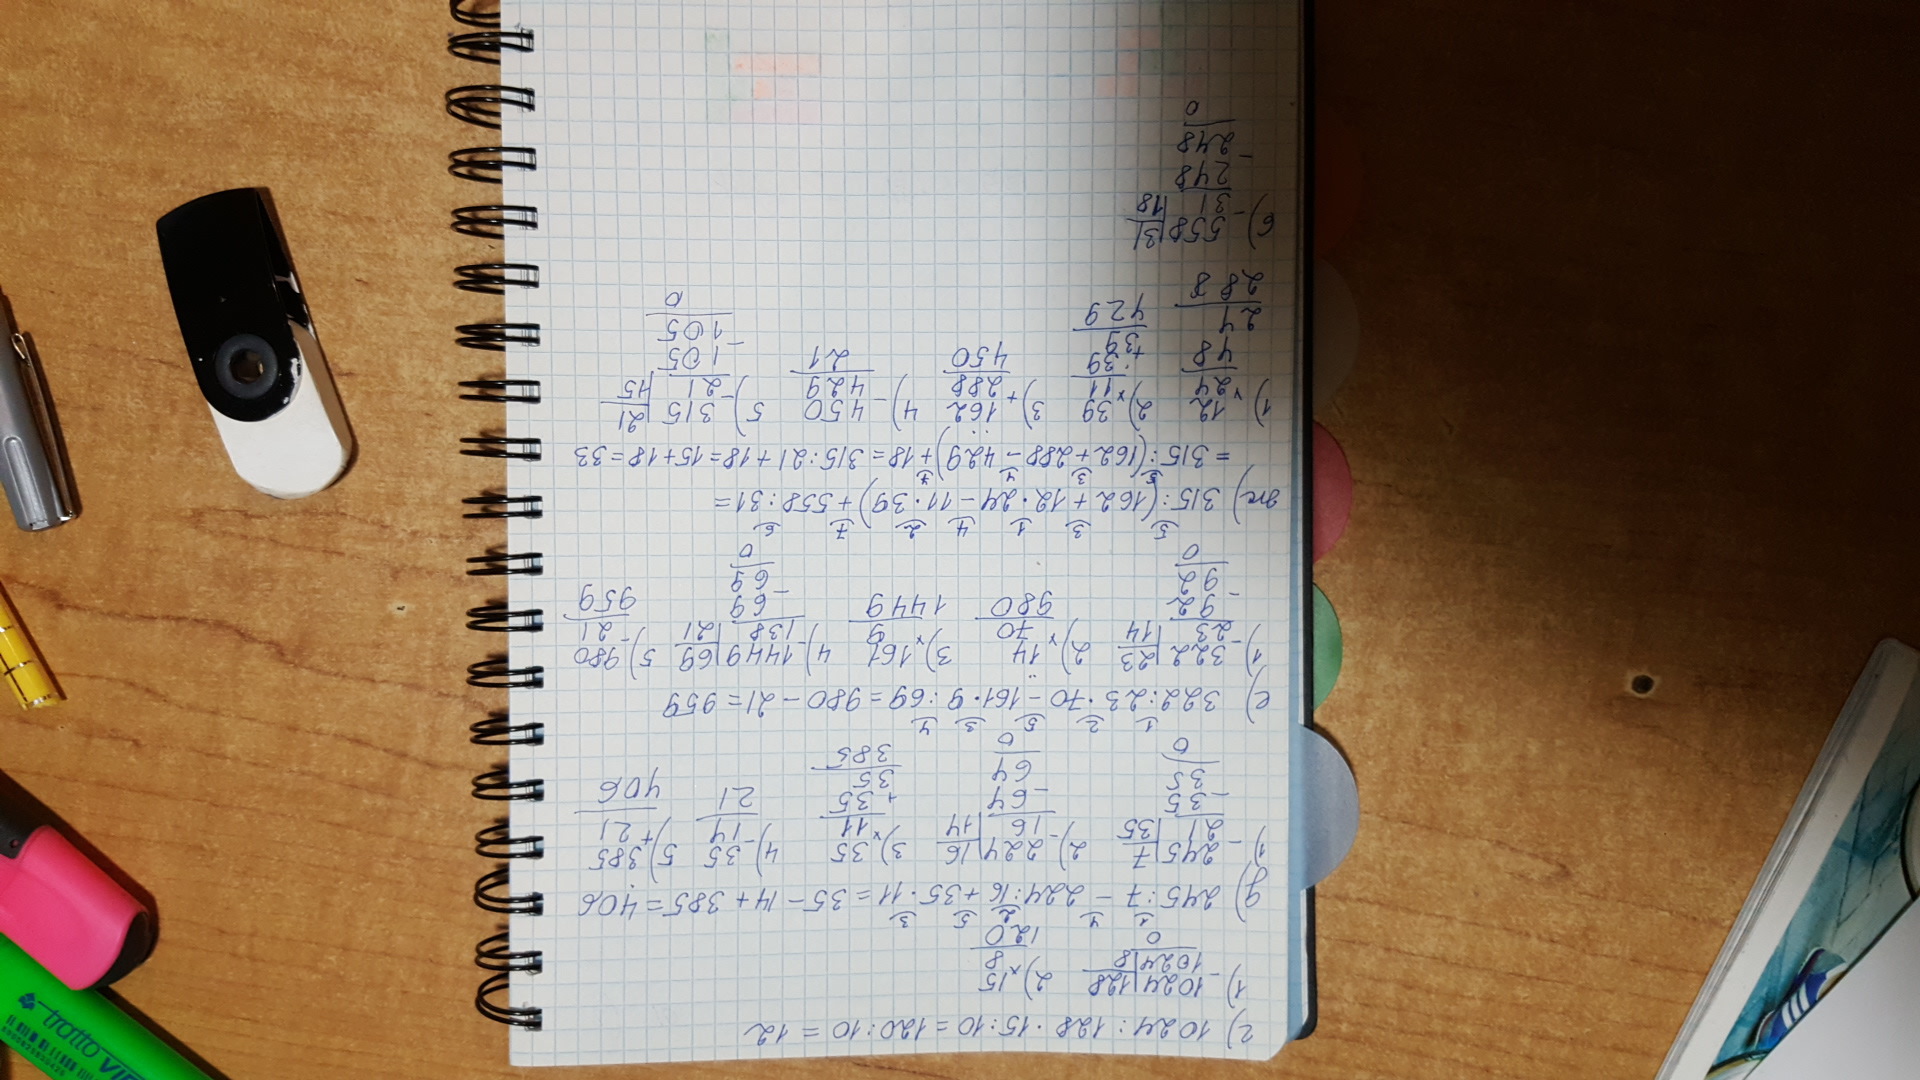 г) 1024 : 128 · 15 : 10 = 120 : 10 = 12
1) 1024 | 128
- 1024 | 8
0
2) 15
× 8
120
1 4 2 5 3
д) 245 : 7 − 224 : 16 + 35 · 11 = 35 − 14 + 385 = 406
1) - 245 | 7
21 | 35
- 35
35
0
2) - 224 | 16
16 | 14
- 64
64
0
3) × 35
11
+ 35
35
385
4) - 35
14
21
5) + 385
21
406
1 2 5 3 4
е) 322 : 23 · 70 − 161 · 9 : 69 = 980 − 21 = 959
1) - 322 | 23
23 | 14
- 92
92
0
2) × 14
70
980
3) × 161
9
1449
4) - 1449 | 69
138 | 21
- 69
69
0
5) - 980
21
959
5 3 1 4 2 7 6
ж) 315 : (162 + 12 · 24 − 11 · 39) + 558 : 31 =
5 3 4 7
= 315 : (162 + 288 − 429) + 18 = 315 : 21 + 18 = 15 + 18 = 33
1) × 12
24
48
24
288
2) × 39
11
+ 39
39
429
3) + 162
288
450
4) - 450
429
21
5) - 315 | 21
21 | 15
- 105
105
0
6) - 558 | 31
31 | 18
- 248
248
0
tratto VI